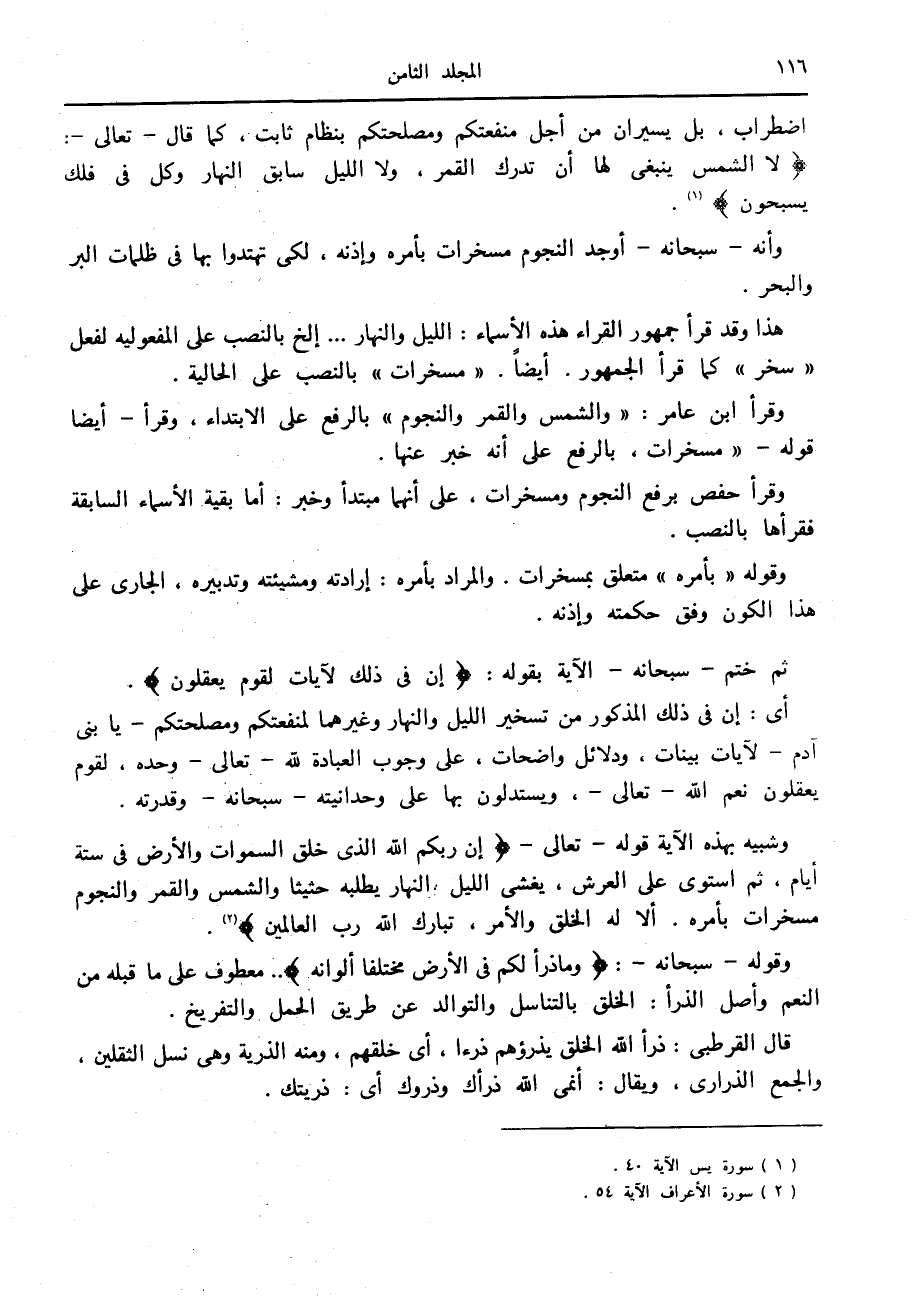 ١١٦
المجلد الثامن
اضطراب ، بل يسيران من أجل منفعتكم ومصلحتكم بنظام ثابت ، كما قال – تعالى –:
﴿ لا الشمس ينبغى لها أن تدرك القمر ، ولا الليل سابق النهار وكل فى فلك
يسبحون ﴾ (١) .
وأنه – سبحانه – أوجد النجوم مسخرات بأمره وإذنه ، لكى تهتدوا بها فى ظلمات البر
والبحر .
هذا وقد قرأ جمهور القراء هذه الأسماء : الليل والنهار ... إلخ بالنصب على المفعوليه لفعل
« سخر » كما قرأ الجمهور . أيضاً . « مسخرات » بالنصب على الحالية .
وقرأ ابن عامر : « والشمس والقمر والنجوم » بالرفع على الابتداء ، وقرأ – أيضا
قوله – « مسخرات ، بالرفع على أنه خبر عنها .
وقرأ حفص برفع النجوم ومسخرات ، على أنهما مبتدأ وخبر : أما بقية الأسماء السابقة
فقرأها بالنصب .
وقوله « بأمره » متعلق بمسخرات . والمراد بأمره : إرادته ومشيئته وتدبيره ، الجارى على
هذا الكون وفق حكمته وإذنه .
ثم ختم – سبحانه – الآية بقوله : ﴿ إن فى ذلك لآيات لقوم يعقلون ﴾ .
أى : إن فى ذلك المذكور من تسخير الليل والنهار وغيرهما لمنفعتكم ومصلحتكم – يا بنى
آدم – لآيات بينات ، ودلائل واضحات ، على وجوب العبادة لله – تعالى – وحده ، لقوم
يعقلون نعم الله – تعالى – ، ويستدلون بها على وحدانيته – سبحانه – وقدرته .
وشبيه بهذه الآية قوله – تعالى – ﴿ إن ربكم الله الذى خلق السموات والأرض فى ستة
أيام ، ثم استوى على العرش ، يغشى الليل النهار يطلبه حثيثا والشمس والقمر والنجوم
مسخرات بأمره . ألا له الخلق والأمر ، تبارك الله رب العالمين ﴾(٢) .
وقوله – سبحانه – : ﴿ وماذرأ لكم فى الأرض مختلفا ألوانه ﴾.. معطوف على ما قبله من
النعم وأصل الذرأ : الخلق بالتناسل والتوالد عن طريق الحمل والتفريخ .
قال القرطبى : ذرأ الله الخلق يذرؤهم ذرءا ، أى خلقهم ، ومنه الذرية وهى نسل الثقلين ،
والجمع الذرارى ، ويقال : أنمى الله ذرأك وذروك أى : ذريتك .
( ١ ) سورة يس الآية ٤٠ .
( ٢ ) سورة الأعراف الآية ٥٤ .